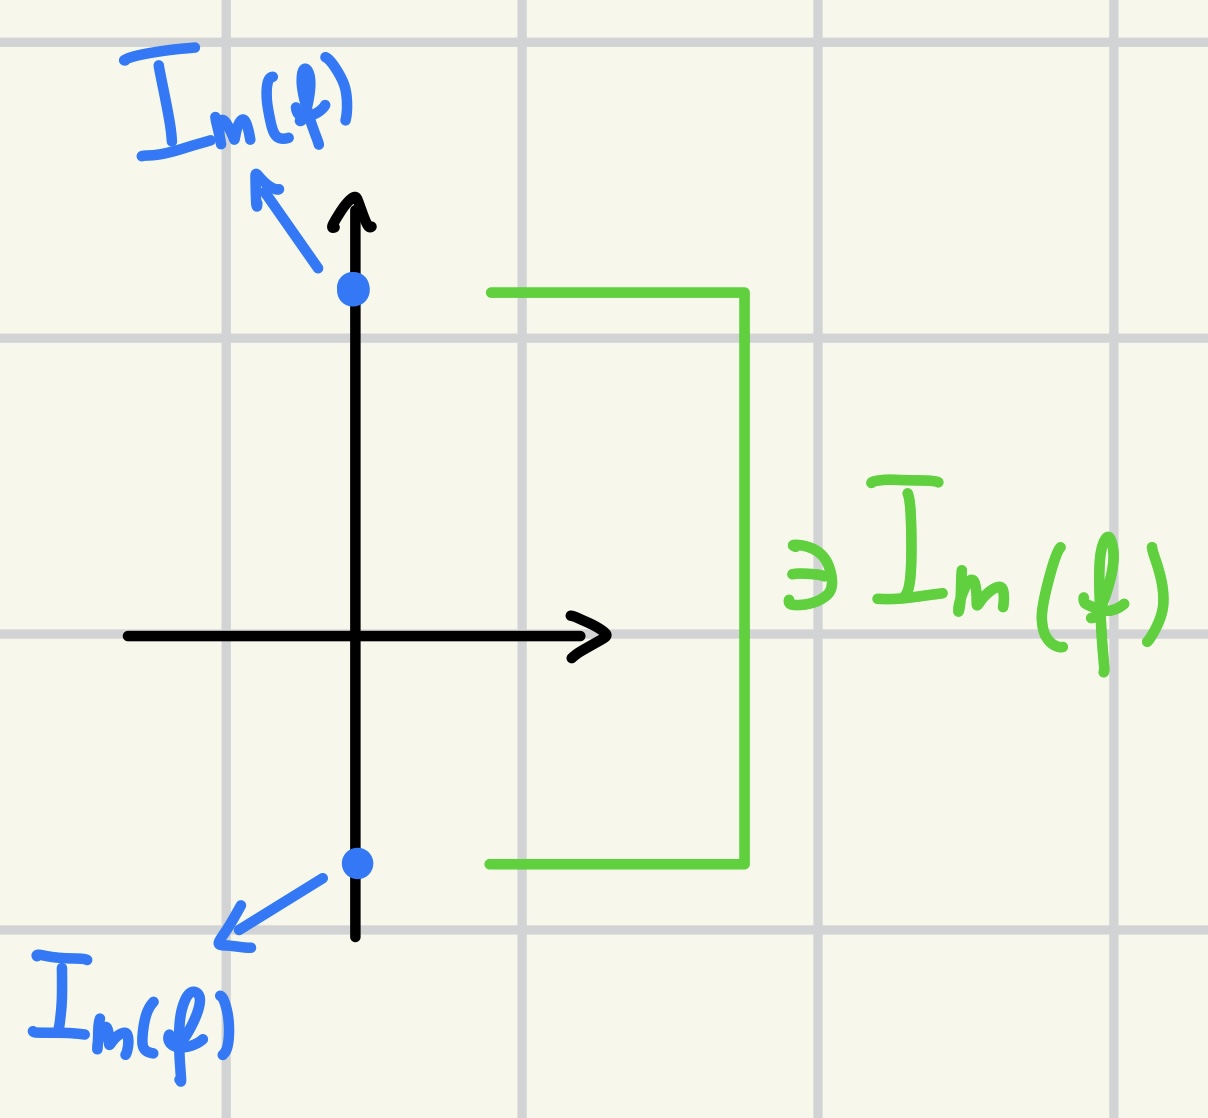 Im(f)
∋ Im(f)
Im(f)